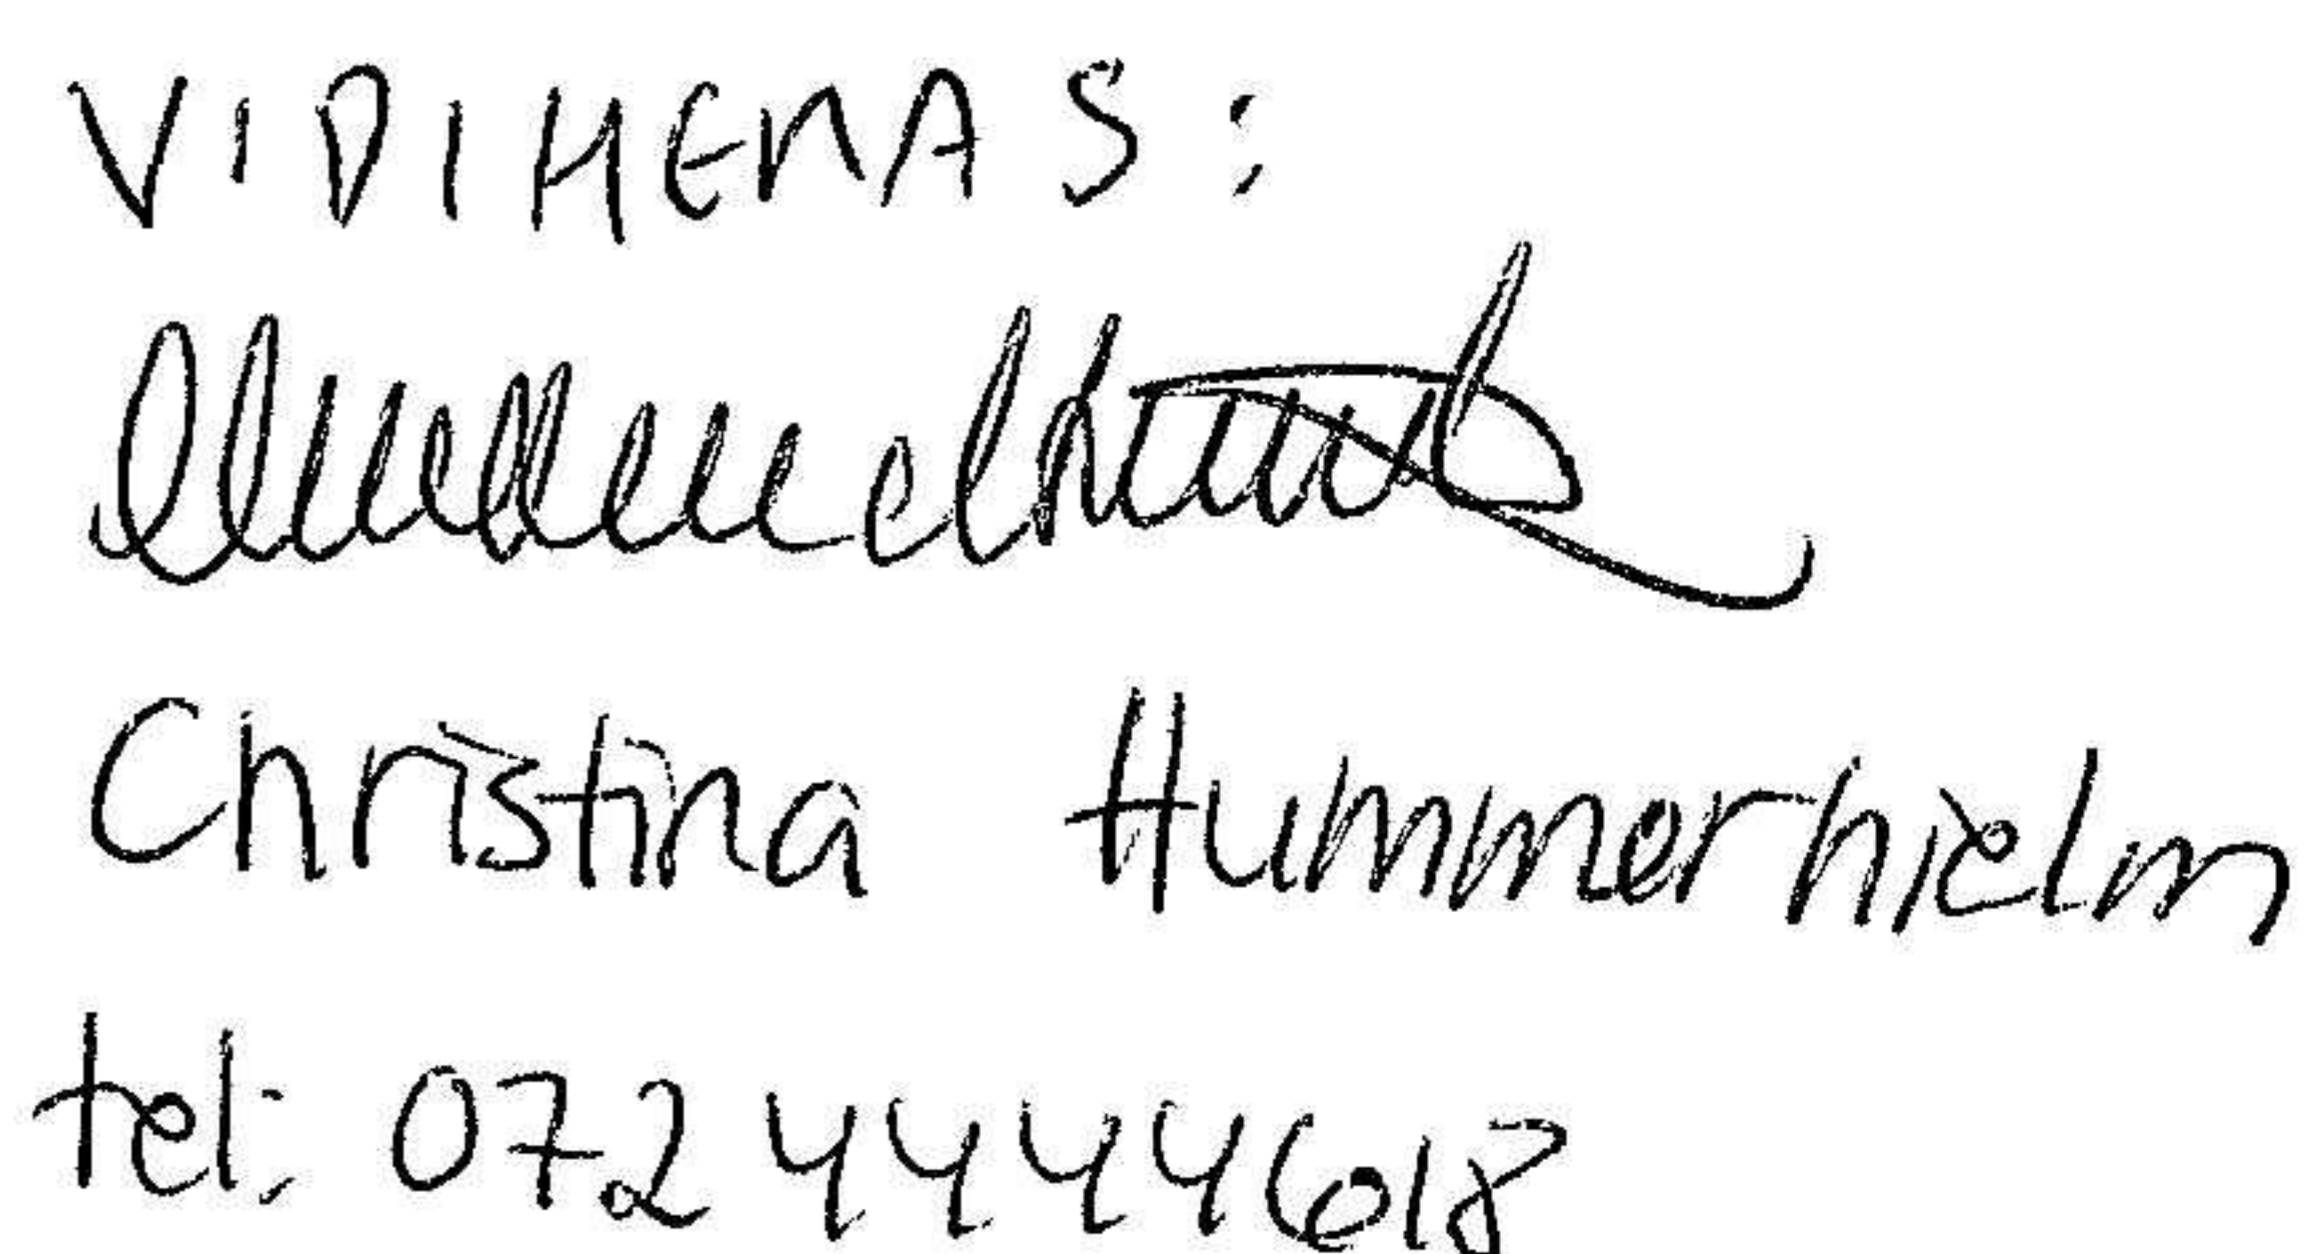 VIDIHERAS:
Christina Hummerhielm
tel: 0724444618